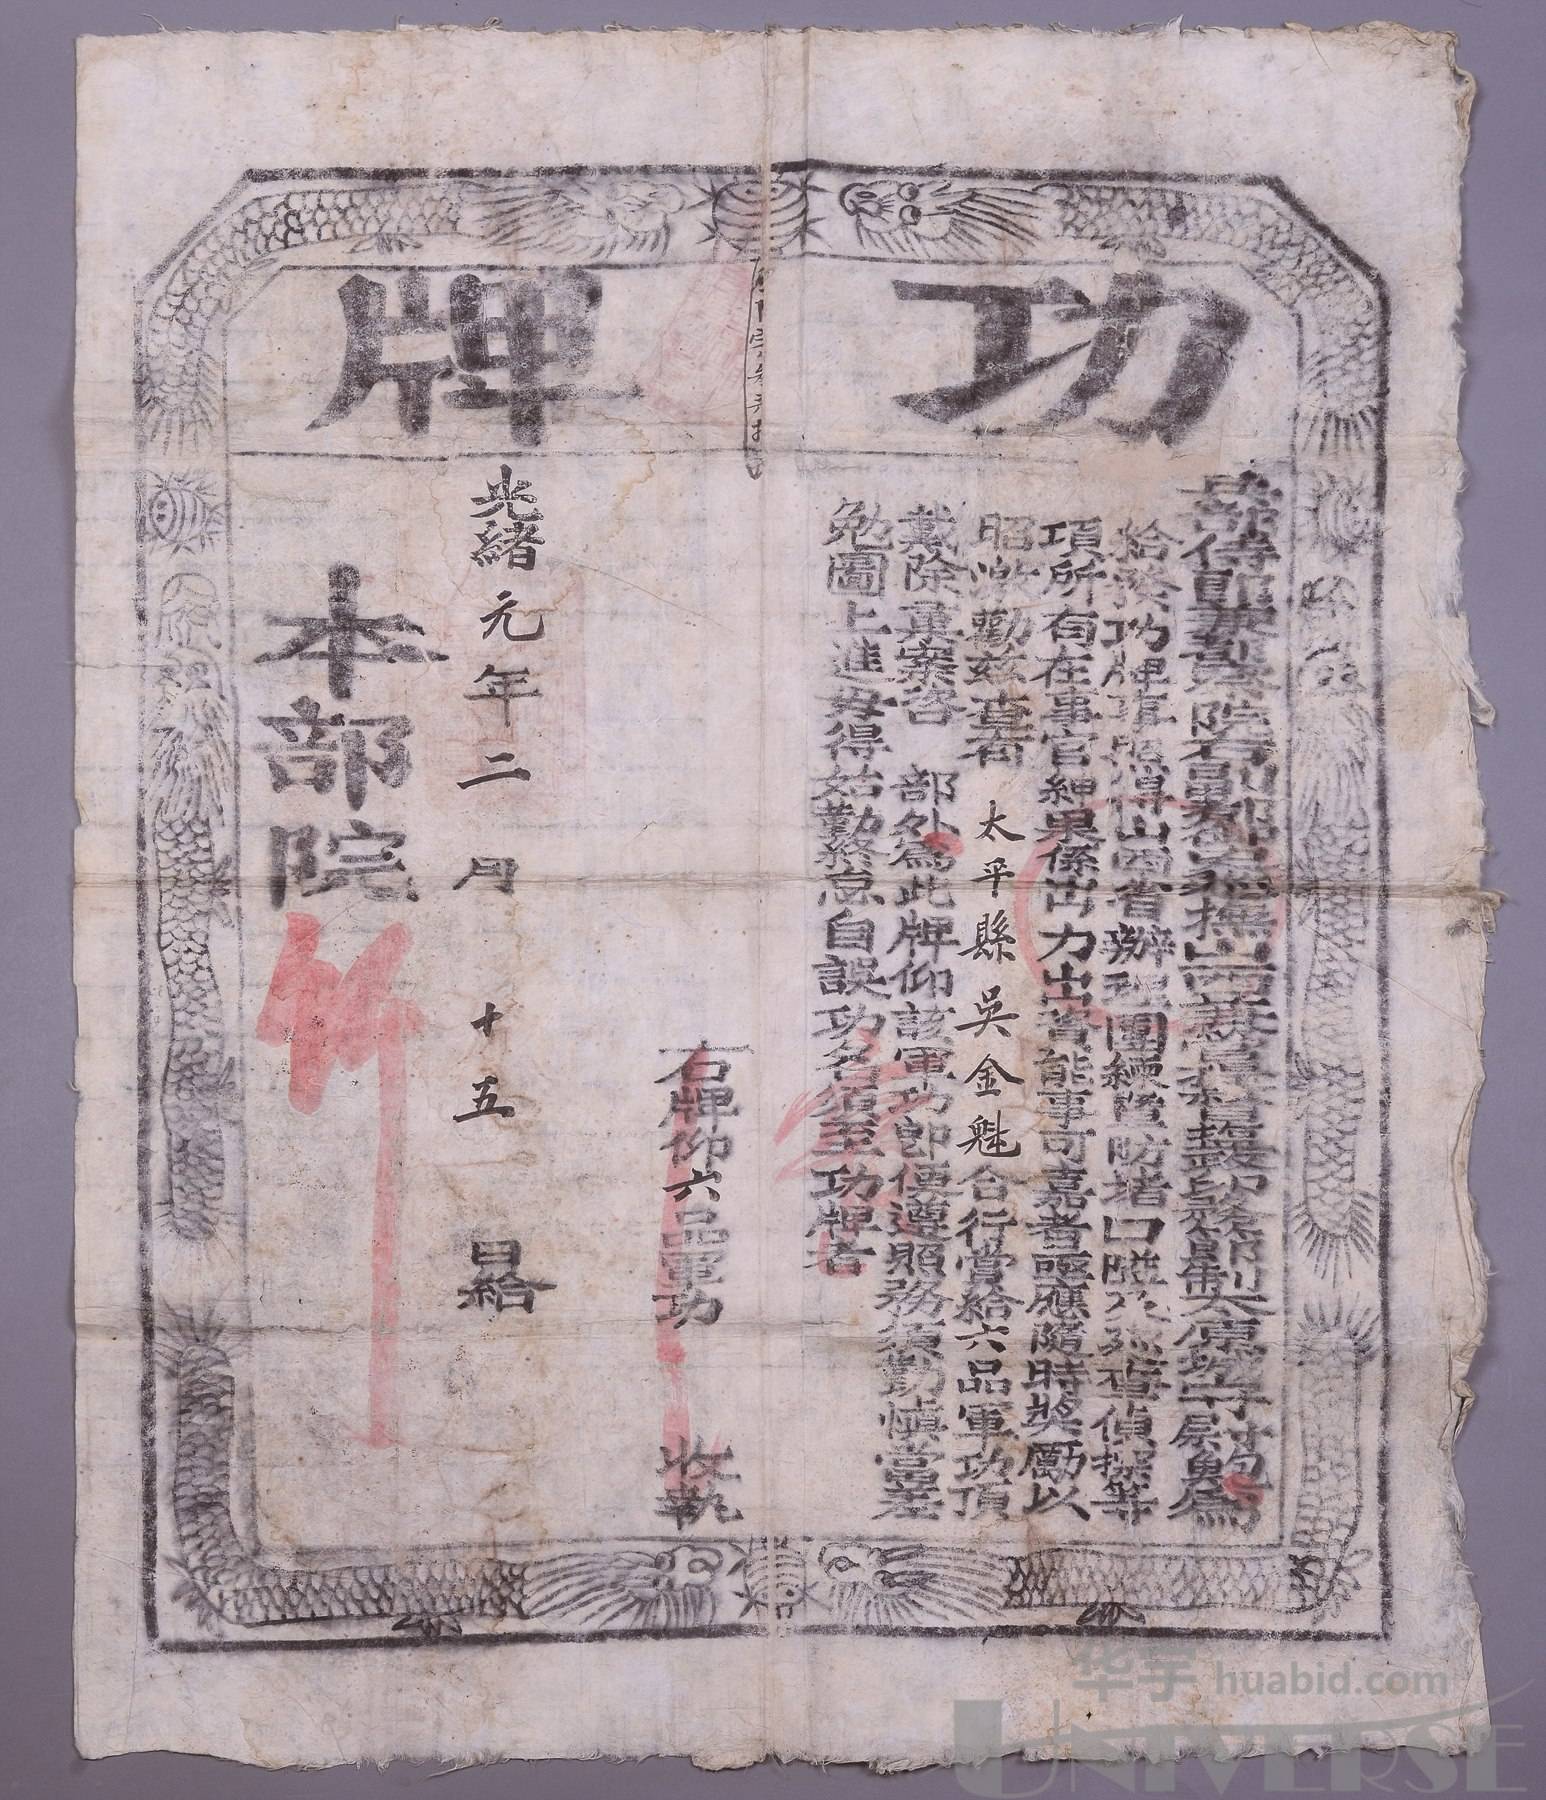 功牌
侍郎兼都察院右副都御史巡撫山西兼提督鹽政印務節制太原城守尉為
給發功牌事照得山西省辦理團練隄防堵口隘稽查偵探等
項所有在事官紳果係出力出資能事可嘉者亟應隨時獎勵以
昭激勸茲查有太平縣吳金魁合行賞給六品軍功頂
戴除彙案咨部外為此牌仰該軍功即便遵照務須勤慎當差
勉圖上進毋得始勤終怠自誤功名須至功牌者
右牌仰六品軍功收執
光緒元年二月十五日給
本部院
华宇 huabid.com
UNIVERSE